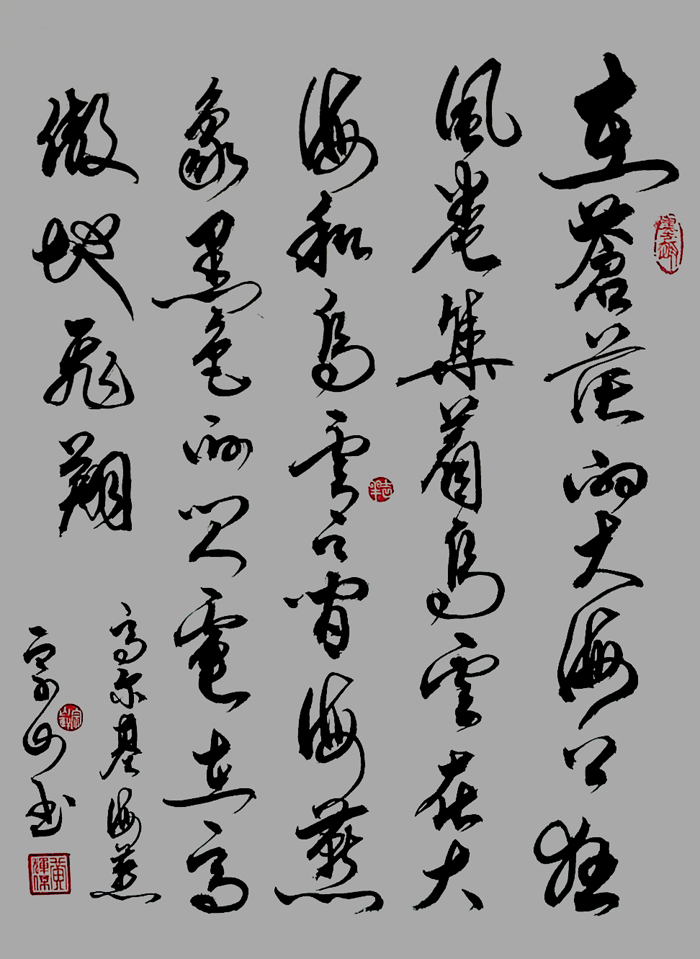 在蒼茫的大海上狂
風卷集着烏雲在大
海和烏雲之間海燕
象黑色的閃電在高
傲地飛翔
高尔基海燕
书